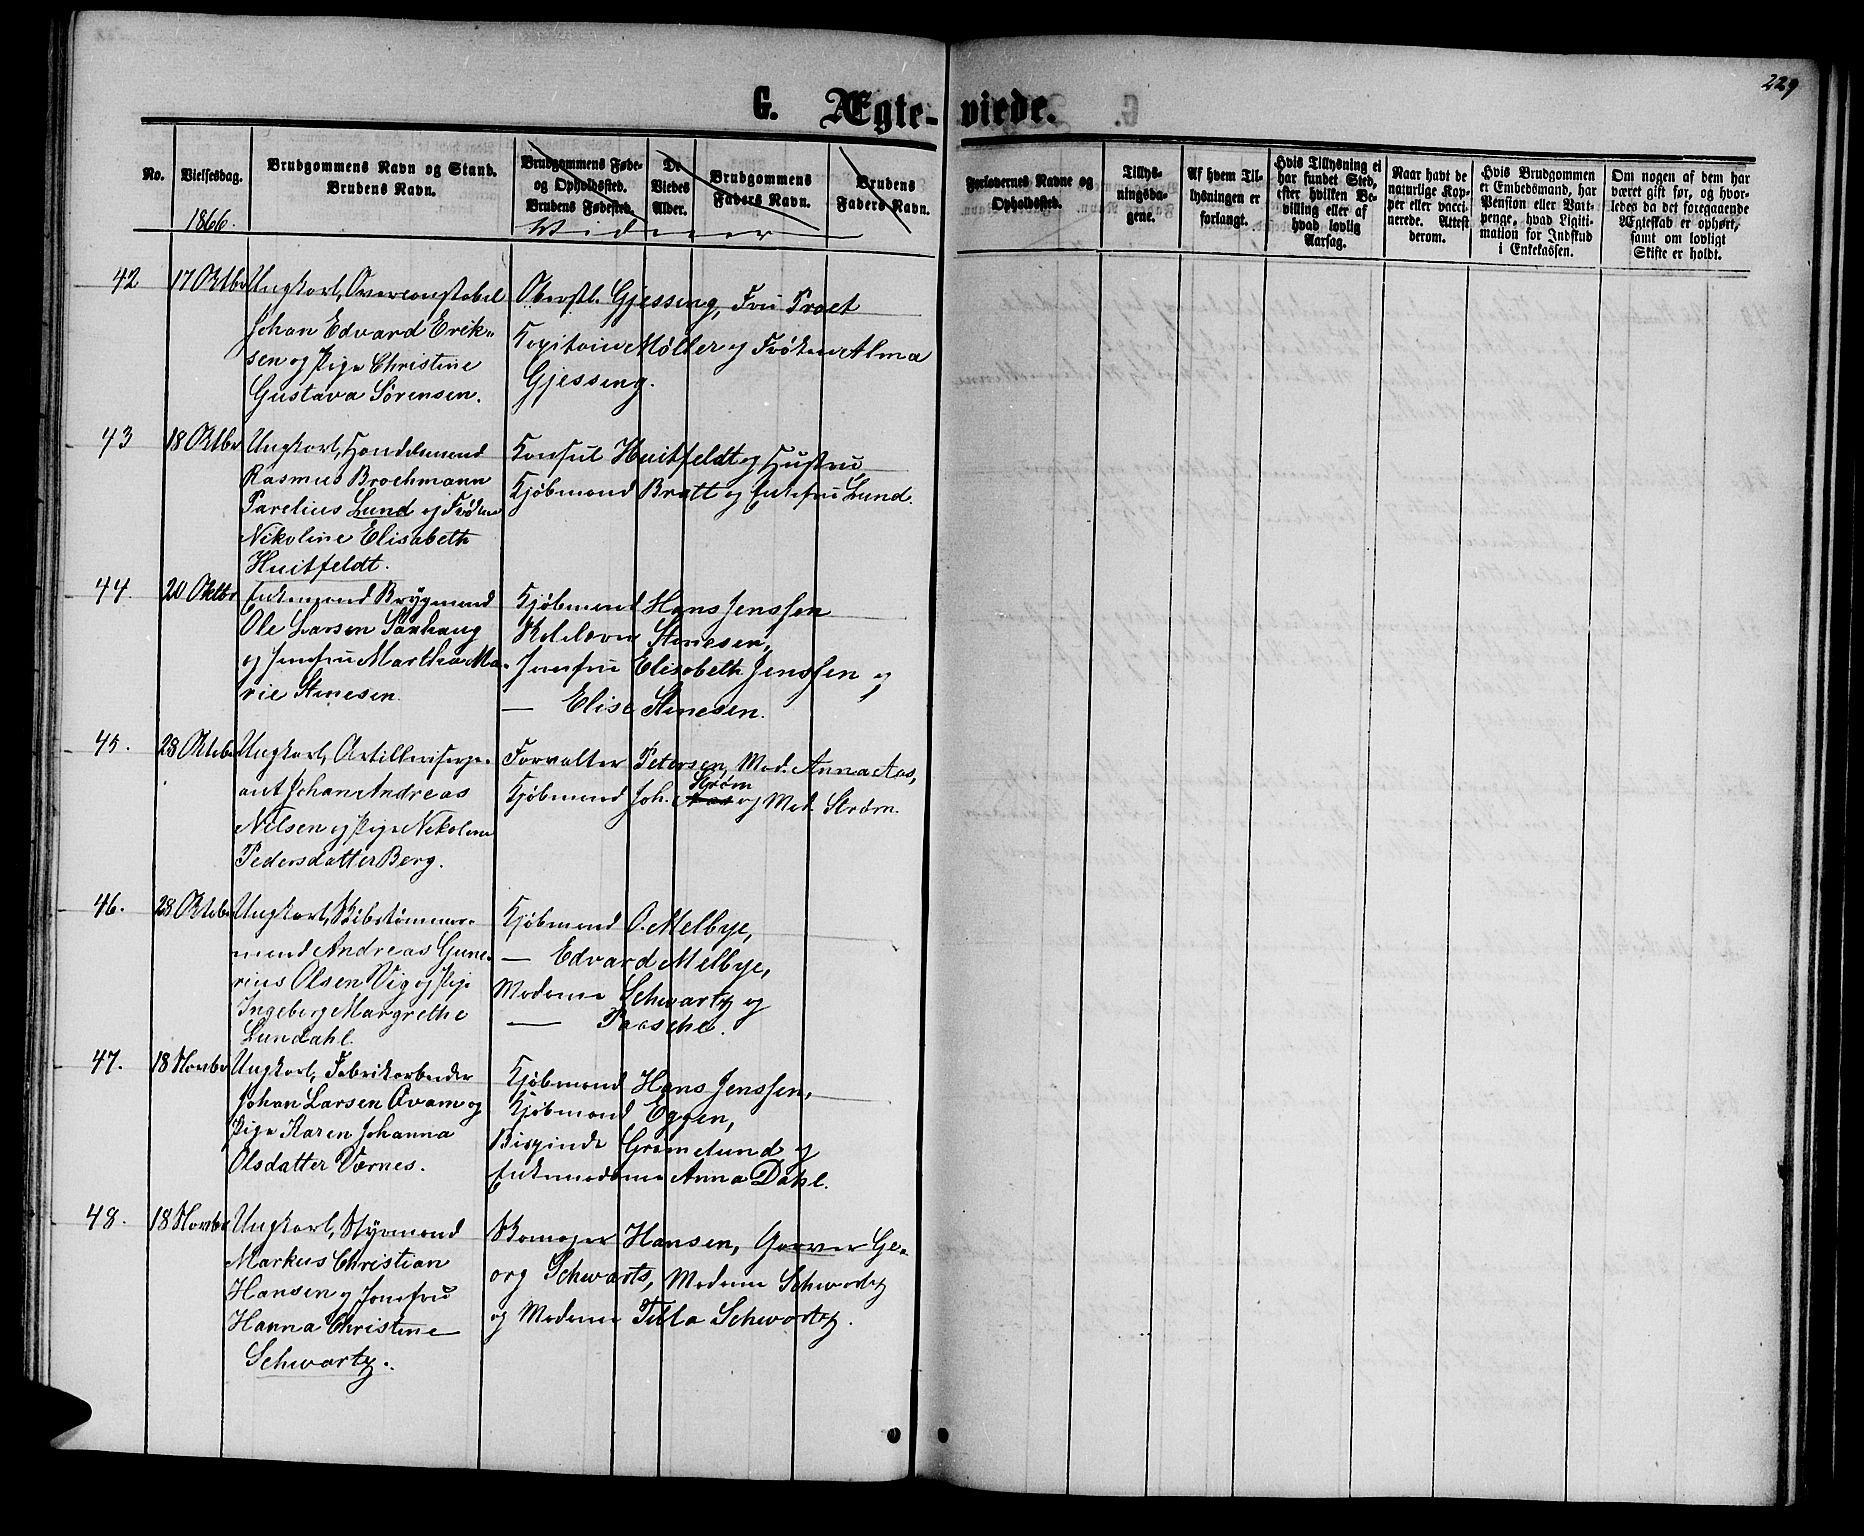 229
G. Ægte-viede.
No.
Vielsesdag.
Brudgommens Navn og Stand.
Brudens Navn.
Brudgommens Føde-
og Opholdssted.
Brudens Fødested.
De
Viedes
Alder.
Brudgommens
Faders Navn.
Brudens
Faders Navn.
Forlovernes Navne og
Opholdssted.
Tillys-
ningsda-
gene.
Af hvem Til-
lysningen er
forlangt.
Hvis Tillysning ei
har fundet Sted,
efter hvilken Be-
villing eller af
hvad lovlig
Aarsag.
Naar havt de
naturlige Kop-
per eller vacci-
nerede. Attest
derom.
Hvis Brudgommen
er Embedsmand, har
Pension eller Vart-
penge, hvad Ligiti-
mation for Indskud
i Enkekassen.
Om nogen af dem har
været gift før, og hvor-
ledes da det foregaaende
Ægteskab er ophørt,
samt om lovligt
Skifte er holdt.
1866.
Vidner
42 17 Oktbr Ungkarl, Overconstabel
Johan Edvard Erik-
sen og Pige Christine
Gustava Sörensen.
Oberstl. Gjessing, Fru Praet
Kapitain Møller og Frøken Alma
Gjessing.
43 18 Oktbr Ungkarl, Handelsmand
Rasmus Brochmann
Parelius Lund og Frøken
Nikoline Elisabeth
Huitfeldt.
Konsul Huitfeldt og Hustru
Kjøbmand Bratt og Enkefru Lund.
44. 20 Oktbr Enkemand Brygmand
Ole Larsen Saxhaug
og Jomfru Martha Ma-
rie Stenesen.
Kjøbmand Hans Jenssen
Stenesen,
Jomfru Elisabeth Jenssen og
— Elise Stenesen.
45. 28 Oktober Ungkarl, Artillerisersje-
ant Johan Andreas
Nilsen og Pige Nikoline
Pedersdatter Berg.
Forvalter Petersen, Mad. Anna Aas,
Kjøbmand Joh. Aas Strøm og Mad. Strøm.
46. 28 Oktober Ungkarl, Skibstømmer-
mand Andreas Gune-
rius Olsen Vig og Pige
Ingeborg Margrethe
Lundahl.
Kjøbmand O. Melbye,
— Edvard Melbye,
Madame Schwartz og
— Paasche.
47. 18 Novbr Ungkarl, Fabrikarbeider
Johan Larsen Qvam og
Pige Karen Johanna
Olsdatter Værnes.
Kjøbmand Hans Jenssen,
Kjøbmand Eggen,
Bispinde Grimelund og
Enkemadame Anna Dahl.
48. 18 Novbr Ungkarl, Styrmand
Markus Christian
Hansen og Jomfru
Hanna Christine
Schwartz.
Skomager Hansen, Garver Ge-
org Schwarts, Madame Schwartz
og Madame Tilla Schwartz.